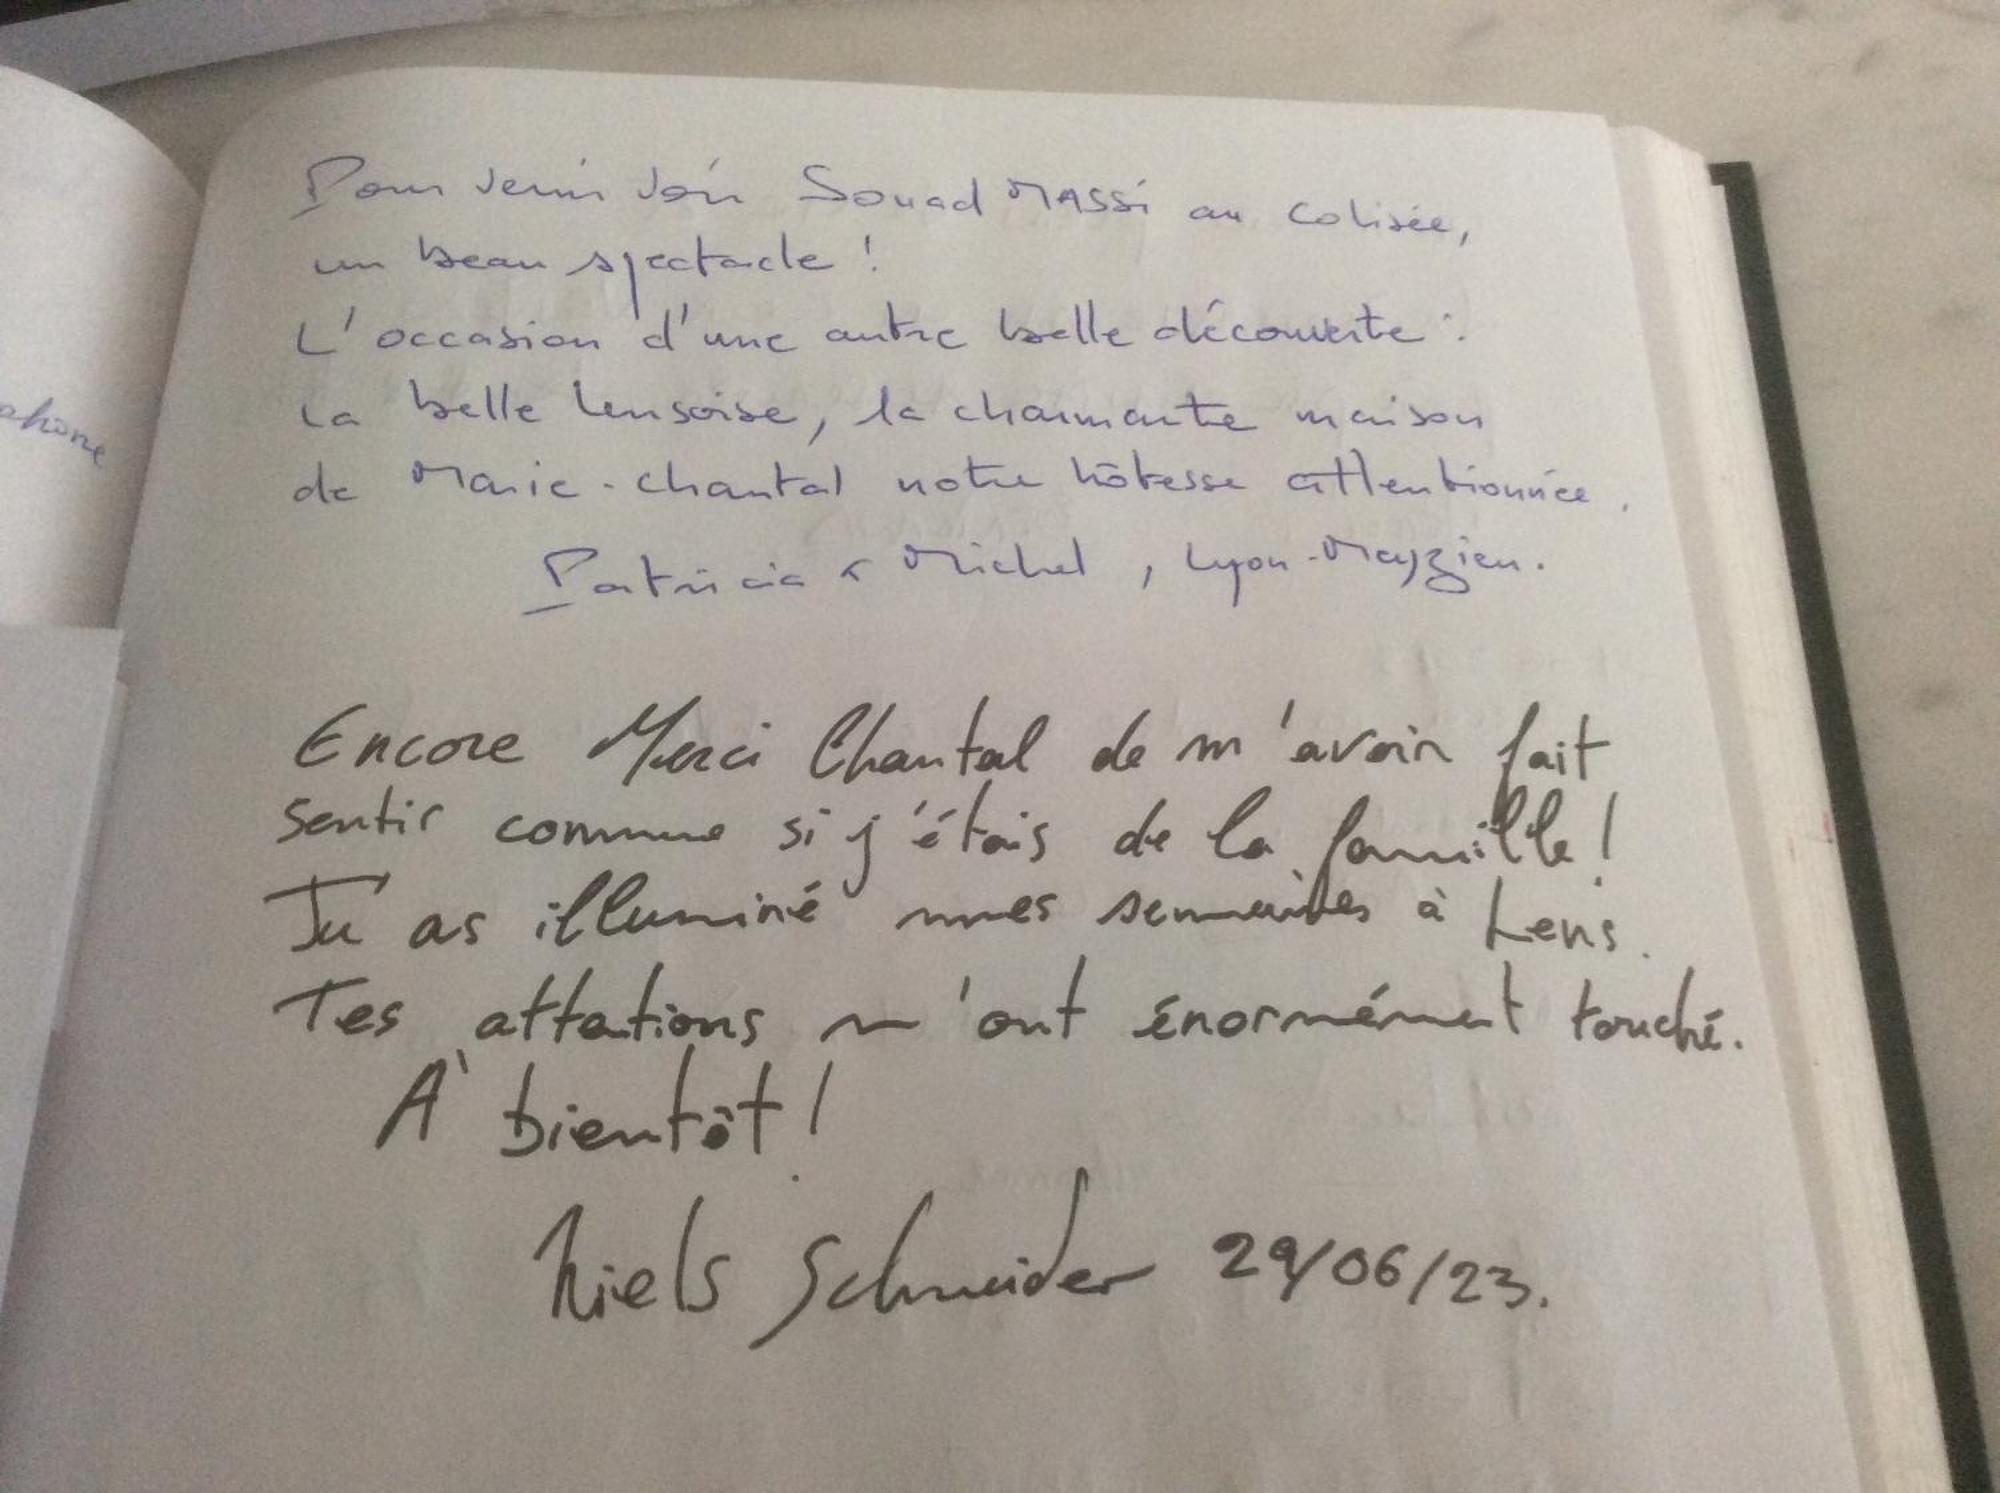 Pour venir voir Souad MASSi au Colisée,
un beau spectacle !
L'occasion d'une autre belle découverte :
La belle Lensoise, la charmante maison
de Marie-Chantal notre hôtesse attentionnée.
Patricia & Michel, Lyon-Meyzieu.
Encore Merci Chantal de m'avoir fait
sentir comme si j'étais de la famille !
Tu as illuminé mes semaines à Lens.
Tes attations m'ont énormément touché.
À bientôt !
Niels Schneider 29/06/23.